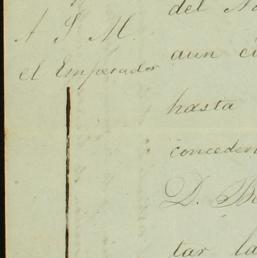 A S M.
el Emperador
del
aun
hasta
D.
tar la